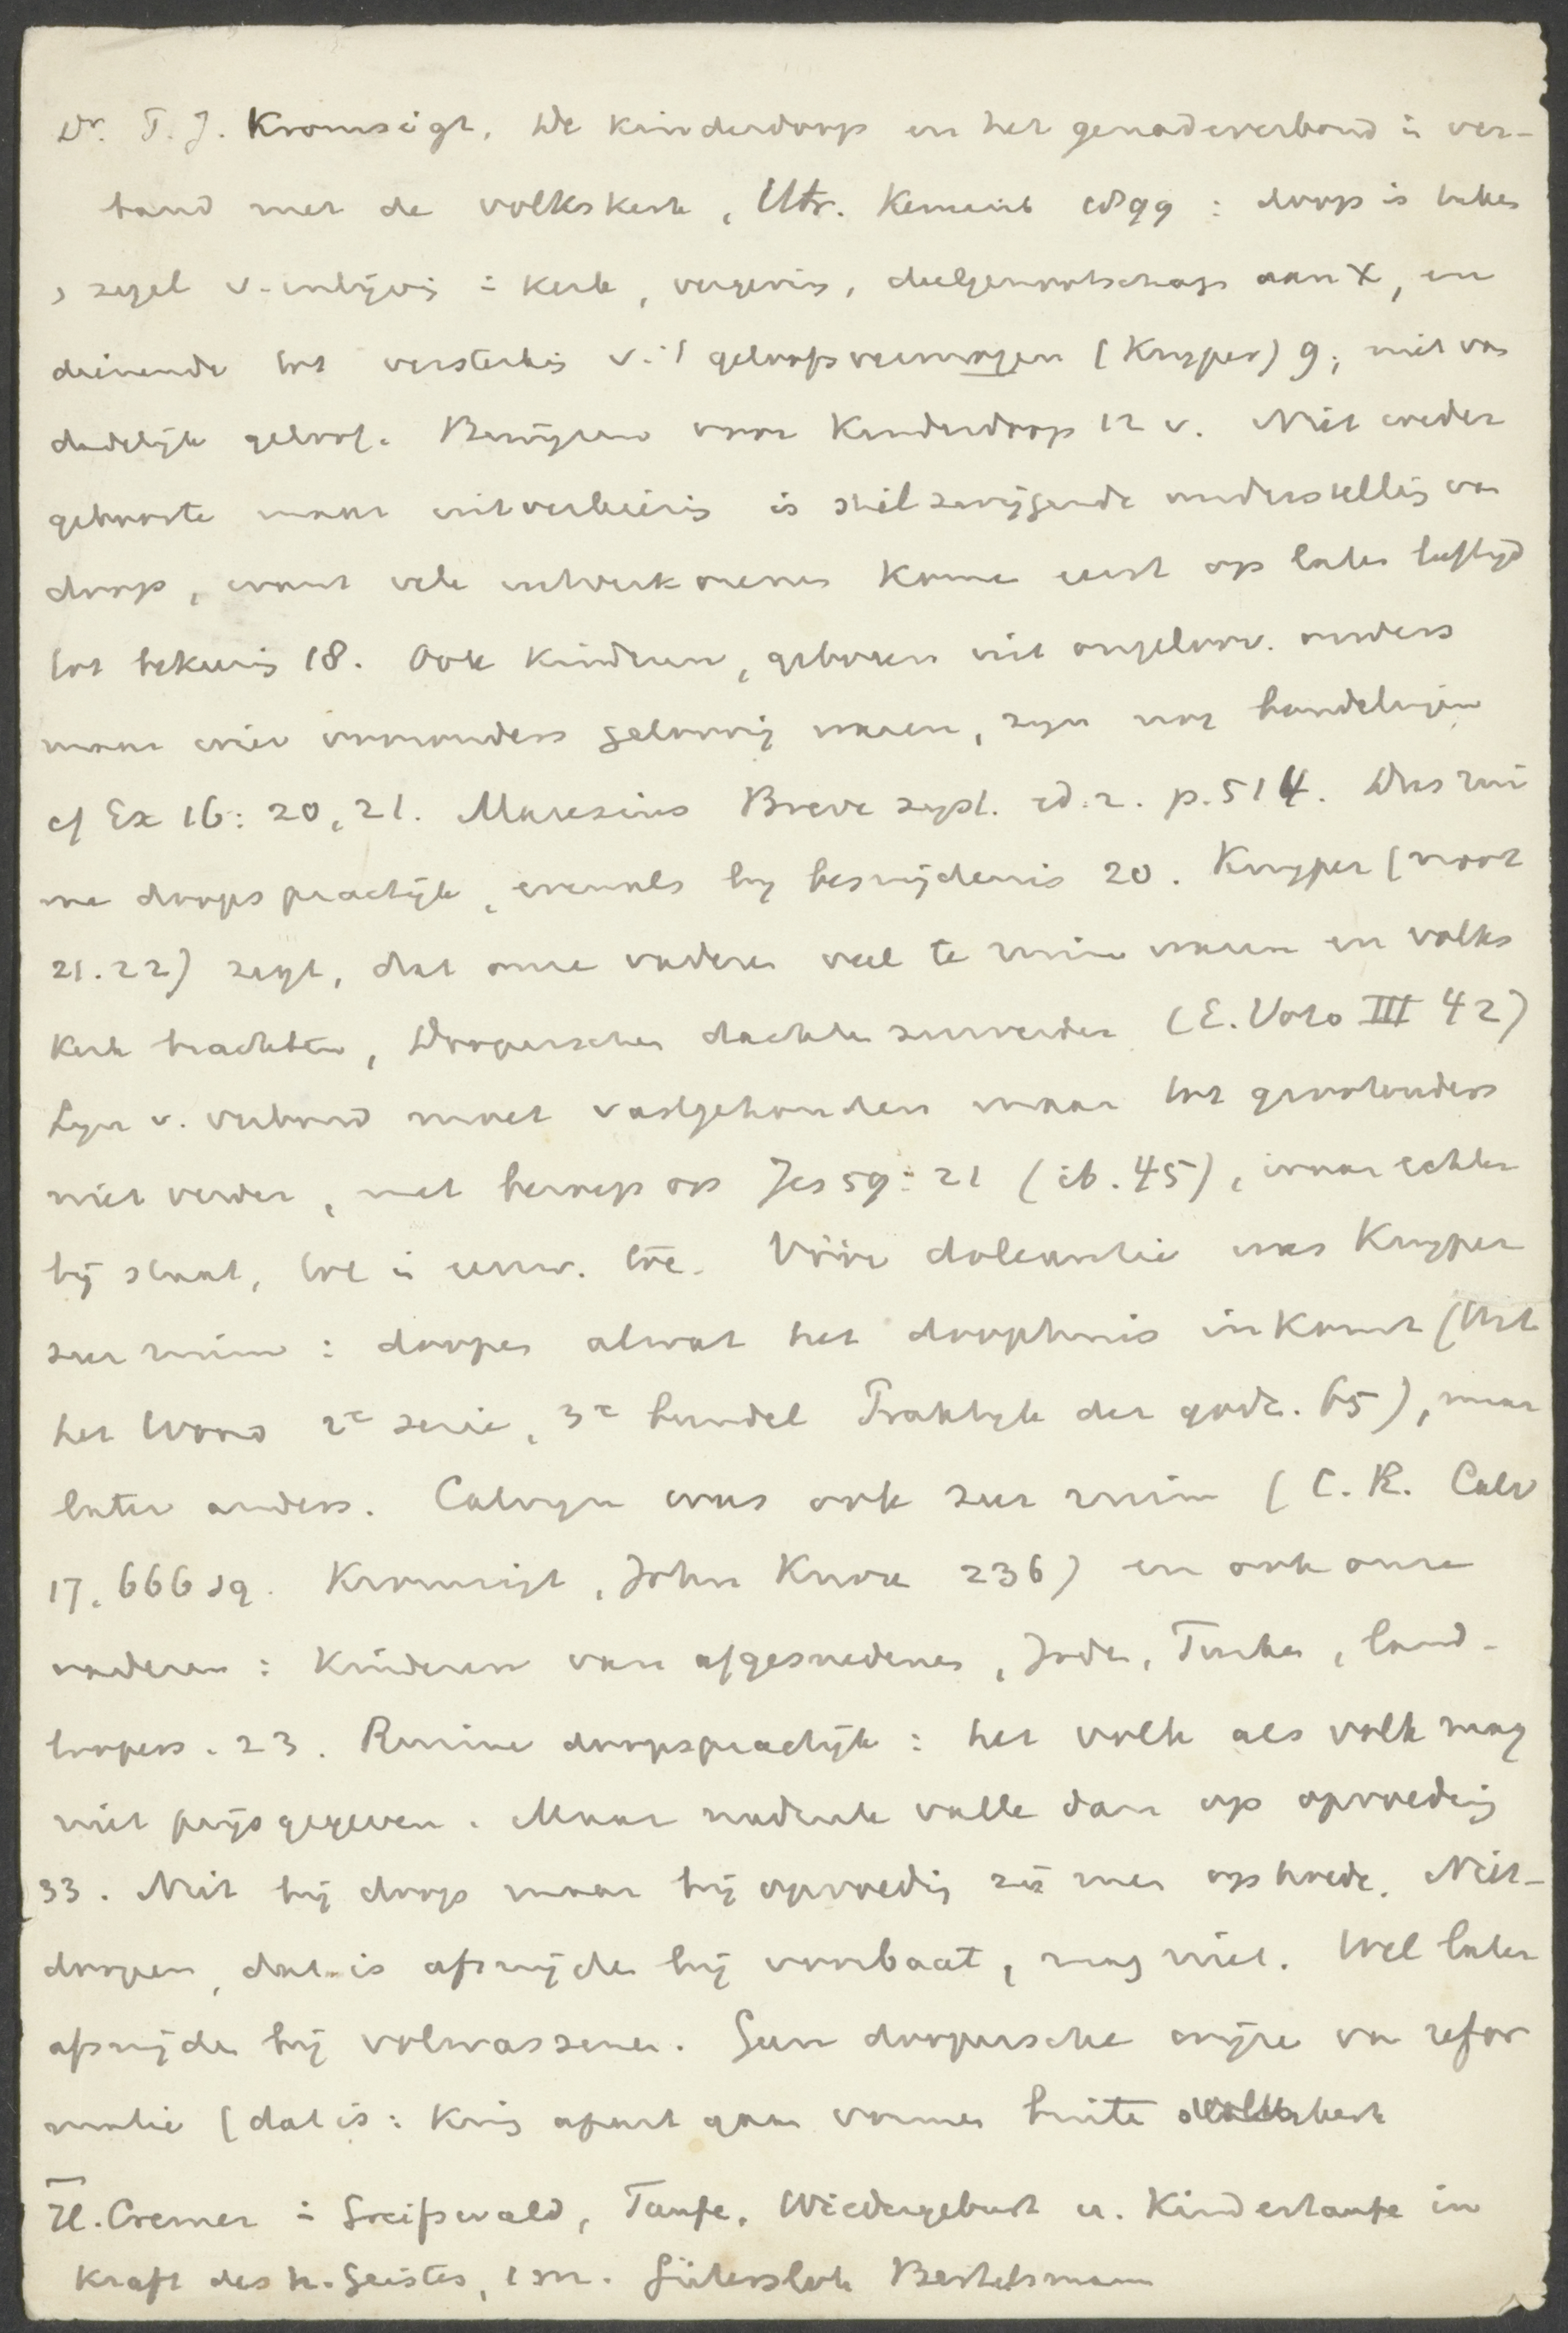 Dr. P. J. Kromsigt, De kinderdoop en het genadeverbond i ver-
band met de volkskerk, Utr. Kemink 1899 : doop is teken
, zegel v. inlijvig i kerk, vergevis, deelgenootschap aan X, en
dienende tot versterkig v. 't geloofsvermogen (Kuyper) 9, niet van
dadelijk geloof. Bewijzen voor Kinderdoop 12 v. Niet weder
geboorte maar uitverkiezig is stilzwijgende onderstellig van
doop, want vele uitverkorenen komen eerst op later leeftijd
tot bekerig 18. Ook kinderen, geboren uit ongeloov. ouders
maar wier voorouders geloovig waren, zijn nog bondelingen
cf Ez 16: 20, 21. Maresius Breve syst. ed. 2. p. 514. Dus rui
me doopspractijk, evenals bij besnijdenis 20. Kuyper (noot
21. 22) zegt, dat onze vaderen veel te ruim waren en volks
kerk trachtten, Dooperschen dachten zuiverder (E. Voto III 42)
Lijn v. verbond moet vastgehouden maar tot grootouders
niet verder, met beroep op Jes 59: 21 (ib. 45), waar echter
bij staat, tot i eeuw. toe. Vóór doleantie was Kuyper
zeer ruim : doopen alwat het doophuis inkomt (Uit
het Woord 2e serie, 3e bundel Praktijk der godz. 65), maar
later anders. Calvijn was ook zeer ruim (C. R. Calv
17, 666 sq. Kromsigt, John Knox 236) en ook onze
vaderen : Kinderen van afgesnedenen, Joden, Turken, land-
loopers. 23. Ruime doopspractijk : het volk als volk mag
niet prijsgegeven. Maar nadruk valle dan op opvoedig
33. Niet bij doop maar bij opvoedig zij men op hoede. Niet-
doopen, dat is afsnijden bij voorbaat, mag niet. Wel later
afsnijden bij volwassenen. Geen doopersche wijze van refor
matie (dat is: Krig apart gaan vormen buiten volkskerk
H. Cremer i Greifswald, Taufe, Wiedergeburt u. Kindertaufe in
Kraft des h. Geistes, 1 M. Gütersloh Bertelsmann